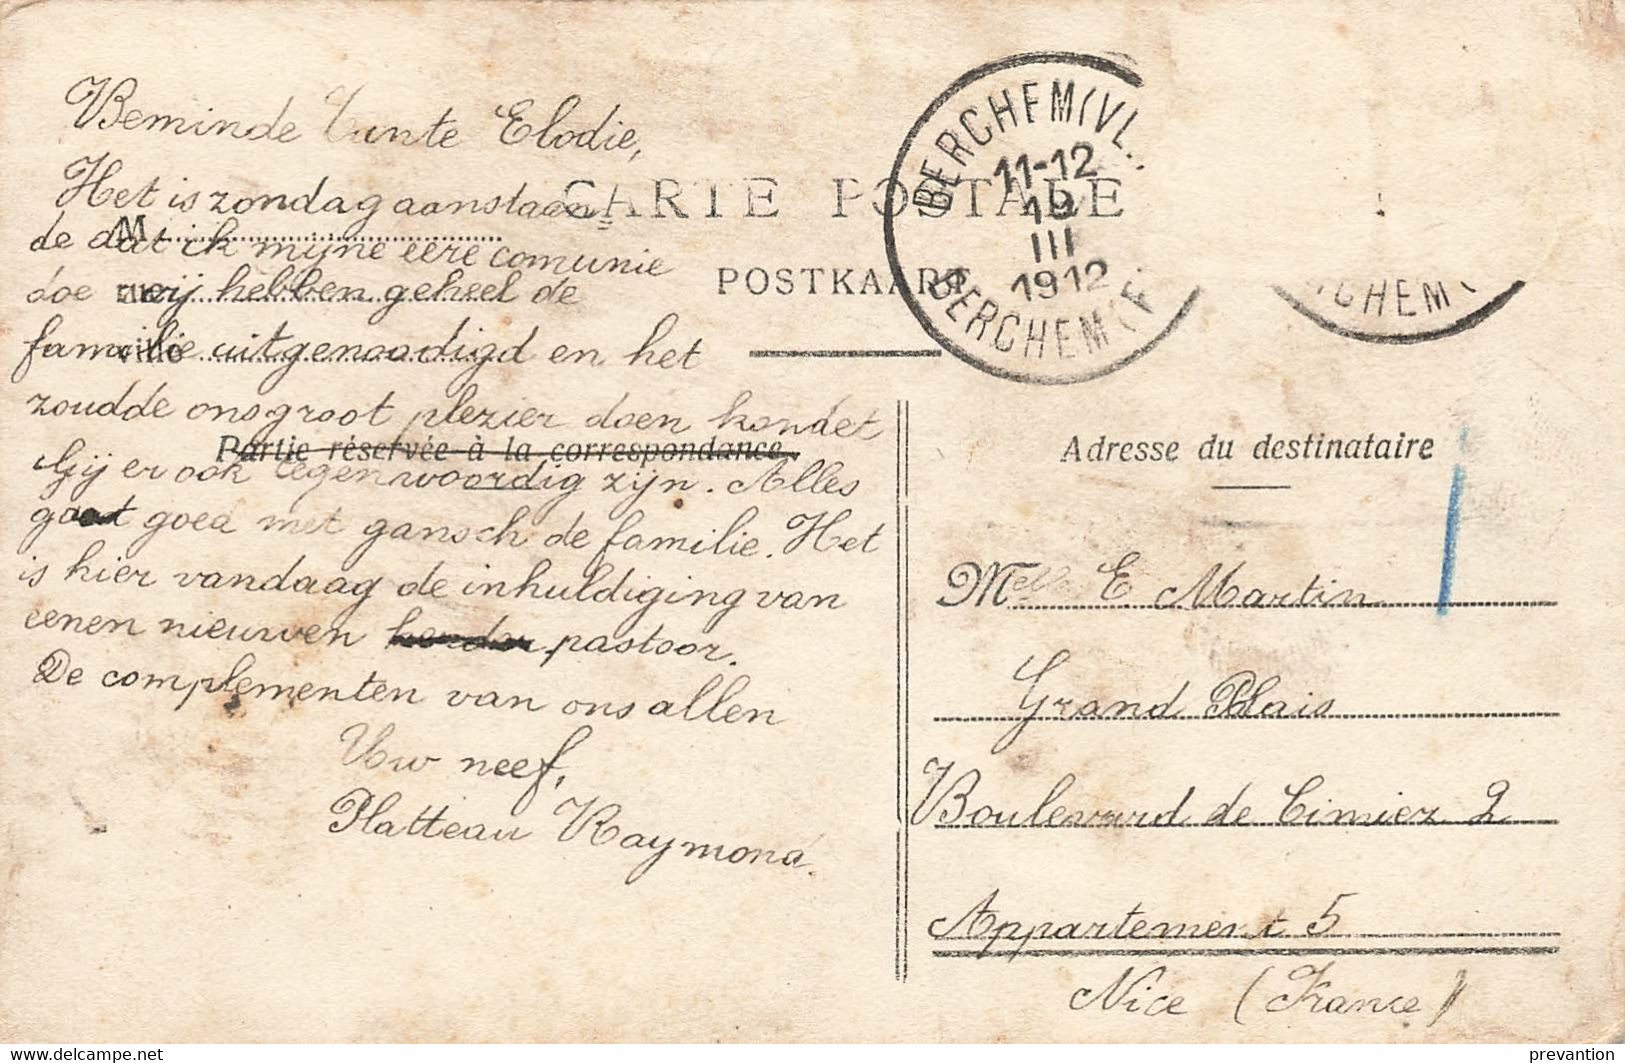 Beminde Tante Elodie,
Het is zondag aanstaan-
de dat ik mijne eere comunie
doe wij hebben geheel de
familie uitgenoodigd en het
zoudde ons groot plezier doen kondet
Gij er ook tegenwoordig zijn. Alles
gaat goed met gansch de familie. Het
is hier vandaag de inhuldiging van
eenen nieuwen pastoor.
De complementen van ons allen
Uw neef,
Platteau Raymond.
CARTE POSTALE
POSTKAART
M
rue
ville
Partie réservée à la correspondance
BERCHEM (VL.
11-12
19
III
1912
BERCHEM (F.
CHEM (
Adresse du destinataire
Melle E Martin
Grand Palais
Boulevard de Cimiez 2
Appartement 5
Nice (France)
delcampe.net
prevantion